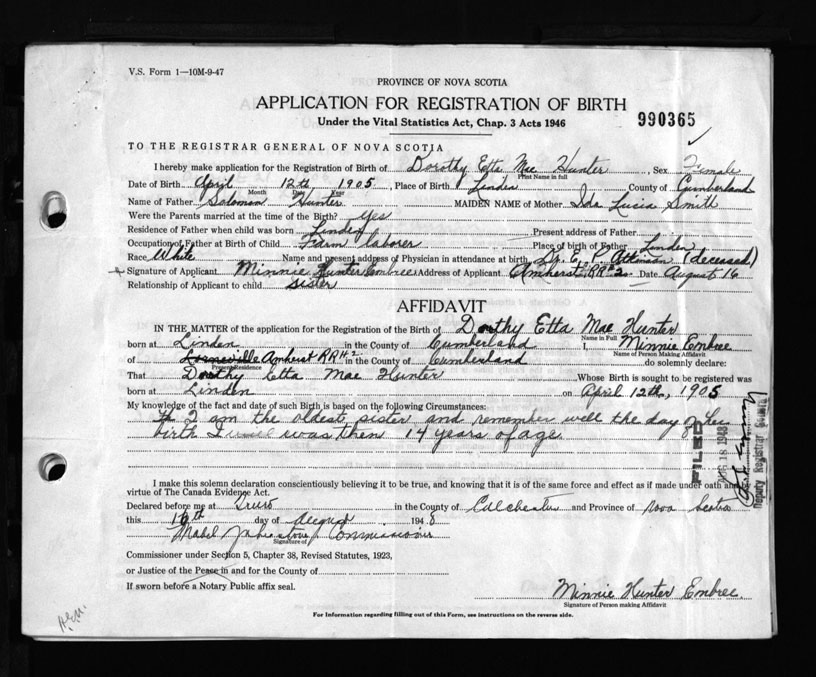 V.S. Form 1—10M-9-47
PROVINCE OF NOVA SCOTIA
APPLICATION FOR REGISTRATION OF BIRTH
Under the Vital Statistics Act, Chap. 3 Acts 1946
990365
TO THE REGISTRAR GENERAL OF NOVA SCOTIA
I hereby make application for the Registration of Birth of Dorothy Etta Mae Hunter, Sex Female
Print Name in full
Date of Birth April 12th 1905, Place of Birth Linden County of Cumberland
Month Day Year
Name of Father Solomon Hunter MAIDEN NAME of Mother Ida Lucia Smith
Were the Parents married at the time of the Birth? yes
Residence of Father when child was born Linden Present address of Father
Occupation of Father at Birth of Child Farm laborer Place of birth of Father Linden
Race White Name and present address of Physician in attendance at birth Dr. C. P. Atkinson (deceased)
Signature of Applicant Minnie Hunter Embree Address of Applicant Amherst RR#2 Date August 16
Relationship of Applicant to child sister
AFFIDAVIT
IN THE MATTER of the application for the Registration of the Birth of Dorothy Etta Mae Hunter
Name in Full
born at Linden in the County of Cumberland I, Minnie Embree
Name of Person Making Affidavit
of Lorneville Amherst RR#2 in the County of Cumberland do solemnly declare:
Present Residence
That Dorothy Etta Mae Hunter Whose Birth is sought to be registered was
born at Linden on April 12th, 1905
My knowledge of the fact and date of such Birth is based on the following Circumstances:
I am the oldest sister and remember well the day of her
birth I was then 14 years of age
FILED
AUG 18 1948
Deputy Registrar General
I make this solemn declaration conscientiously believing it to be true, and knowing that it is of the same force and effect as if made under oath and by
virtue of The Canada Evidence Act.
Declared before me at Truro in the County of Colchester and Province of Nova Scotia
this 16th day of August 1948
Mabel Johnstone, Commissioner
Signature of
Commissioner under Section 5, Chapter 38, Revised Statutes, 1923,
or Justice of the Peace in and for the County of
If sworn before a Notary Public affix seal.
Minnie Hunter Embree
Signature of Person making Affidavit
For Information regarding filling out of this Form, see instructions on the reverse side.